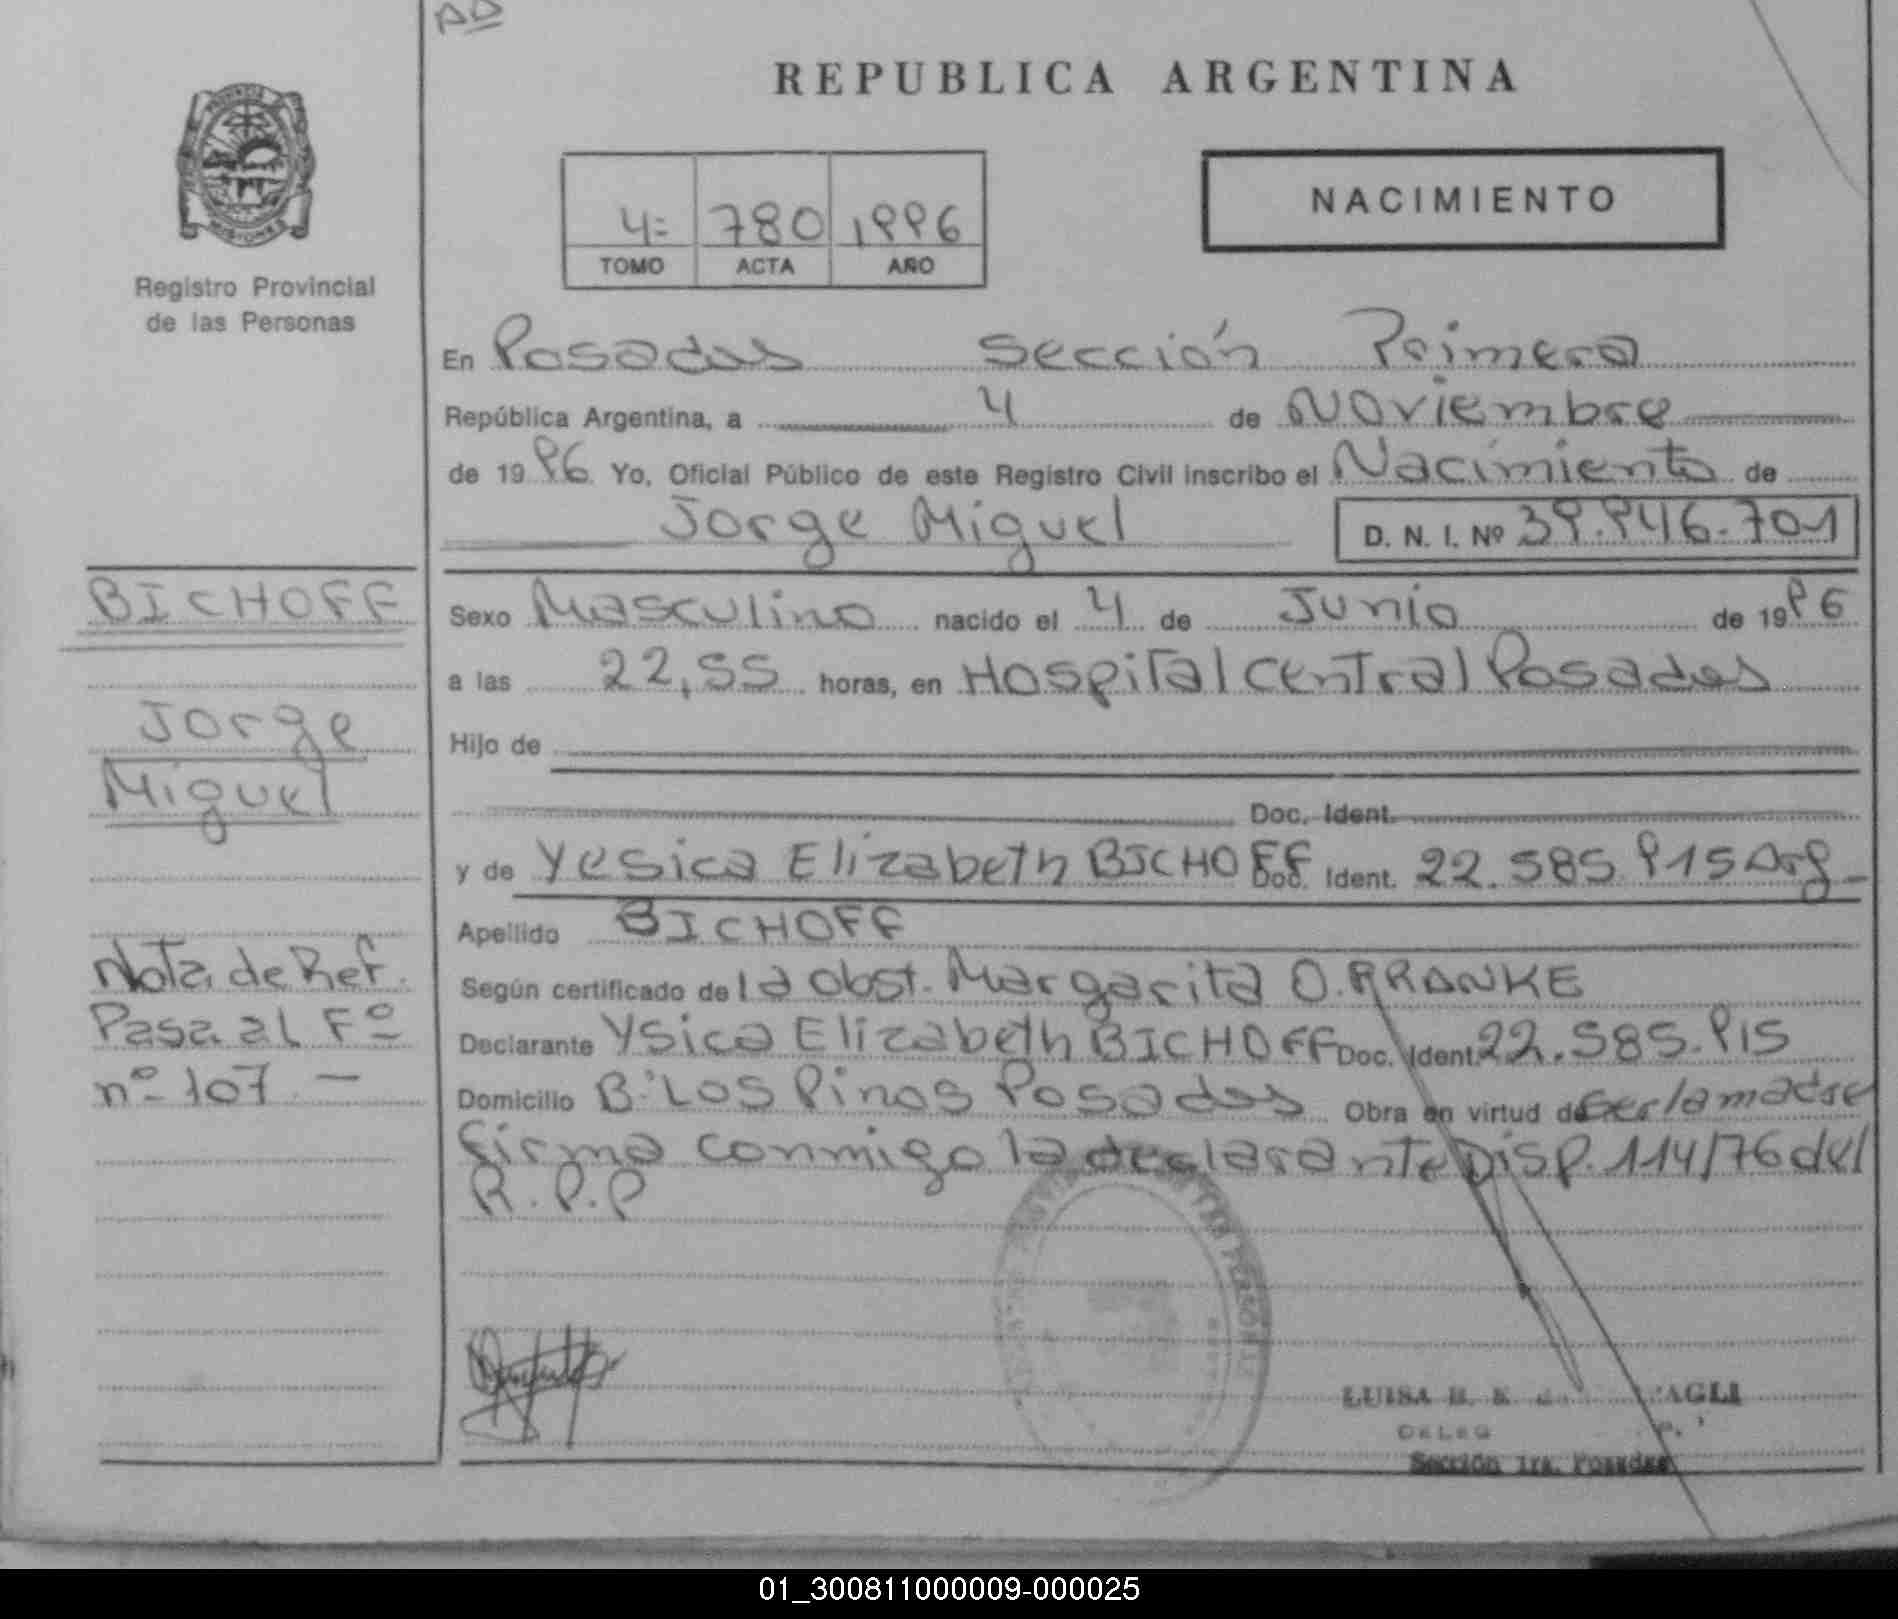 AD
PROVINCIA
MISIONES
Registro Provincial
de las Personas
REPUBLICA ARGENTINA
4= 780 1996
TOMO ACTA AÑO
NACIMIENTO
En Posadas Sección Primera
República Argentina, a 4 de Noviembre
de 19 96 Yo, Oficial Público de este Registro Civil inscribo el Nacimiento de
Jorge Miguel D. N. I. Nº 39.946.701
BICHOFF
Jorge
Miguel
Nota de Ref.
Pasa al Fº
nº 107. —
Sexo Masculino nacido el 4 de Junio de 19 96
a las 22,55 horas, en Hospital Central Posadas
Hijo de
Doc. Ident.
y de Yesica Elizabeth BICHOFF Doc. Ident. 22.585.915 Arg
Apellido BICHOFF
Según certificado de la obst. Margarita O.
Declarante Ysica Elizabeth BICHOFF Doc. Ident. 22.585.915
Domicilio B: Los Pinos Posadas Obra en virtud de ser la madre
firma conmigo la declarante Disp. 114/76 del
R.P.P
LUISA
Sección 1ra. Posadas
01_300811000009-000025